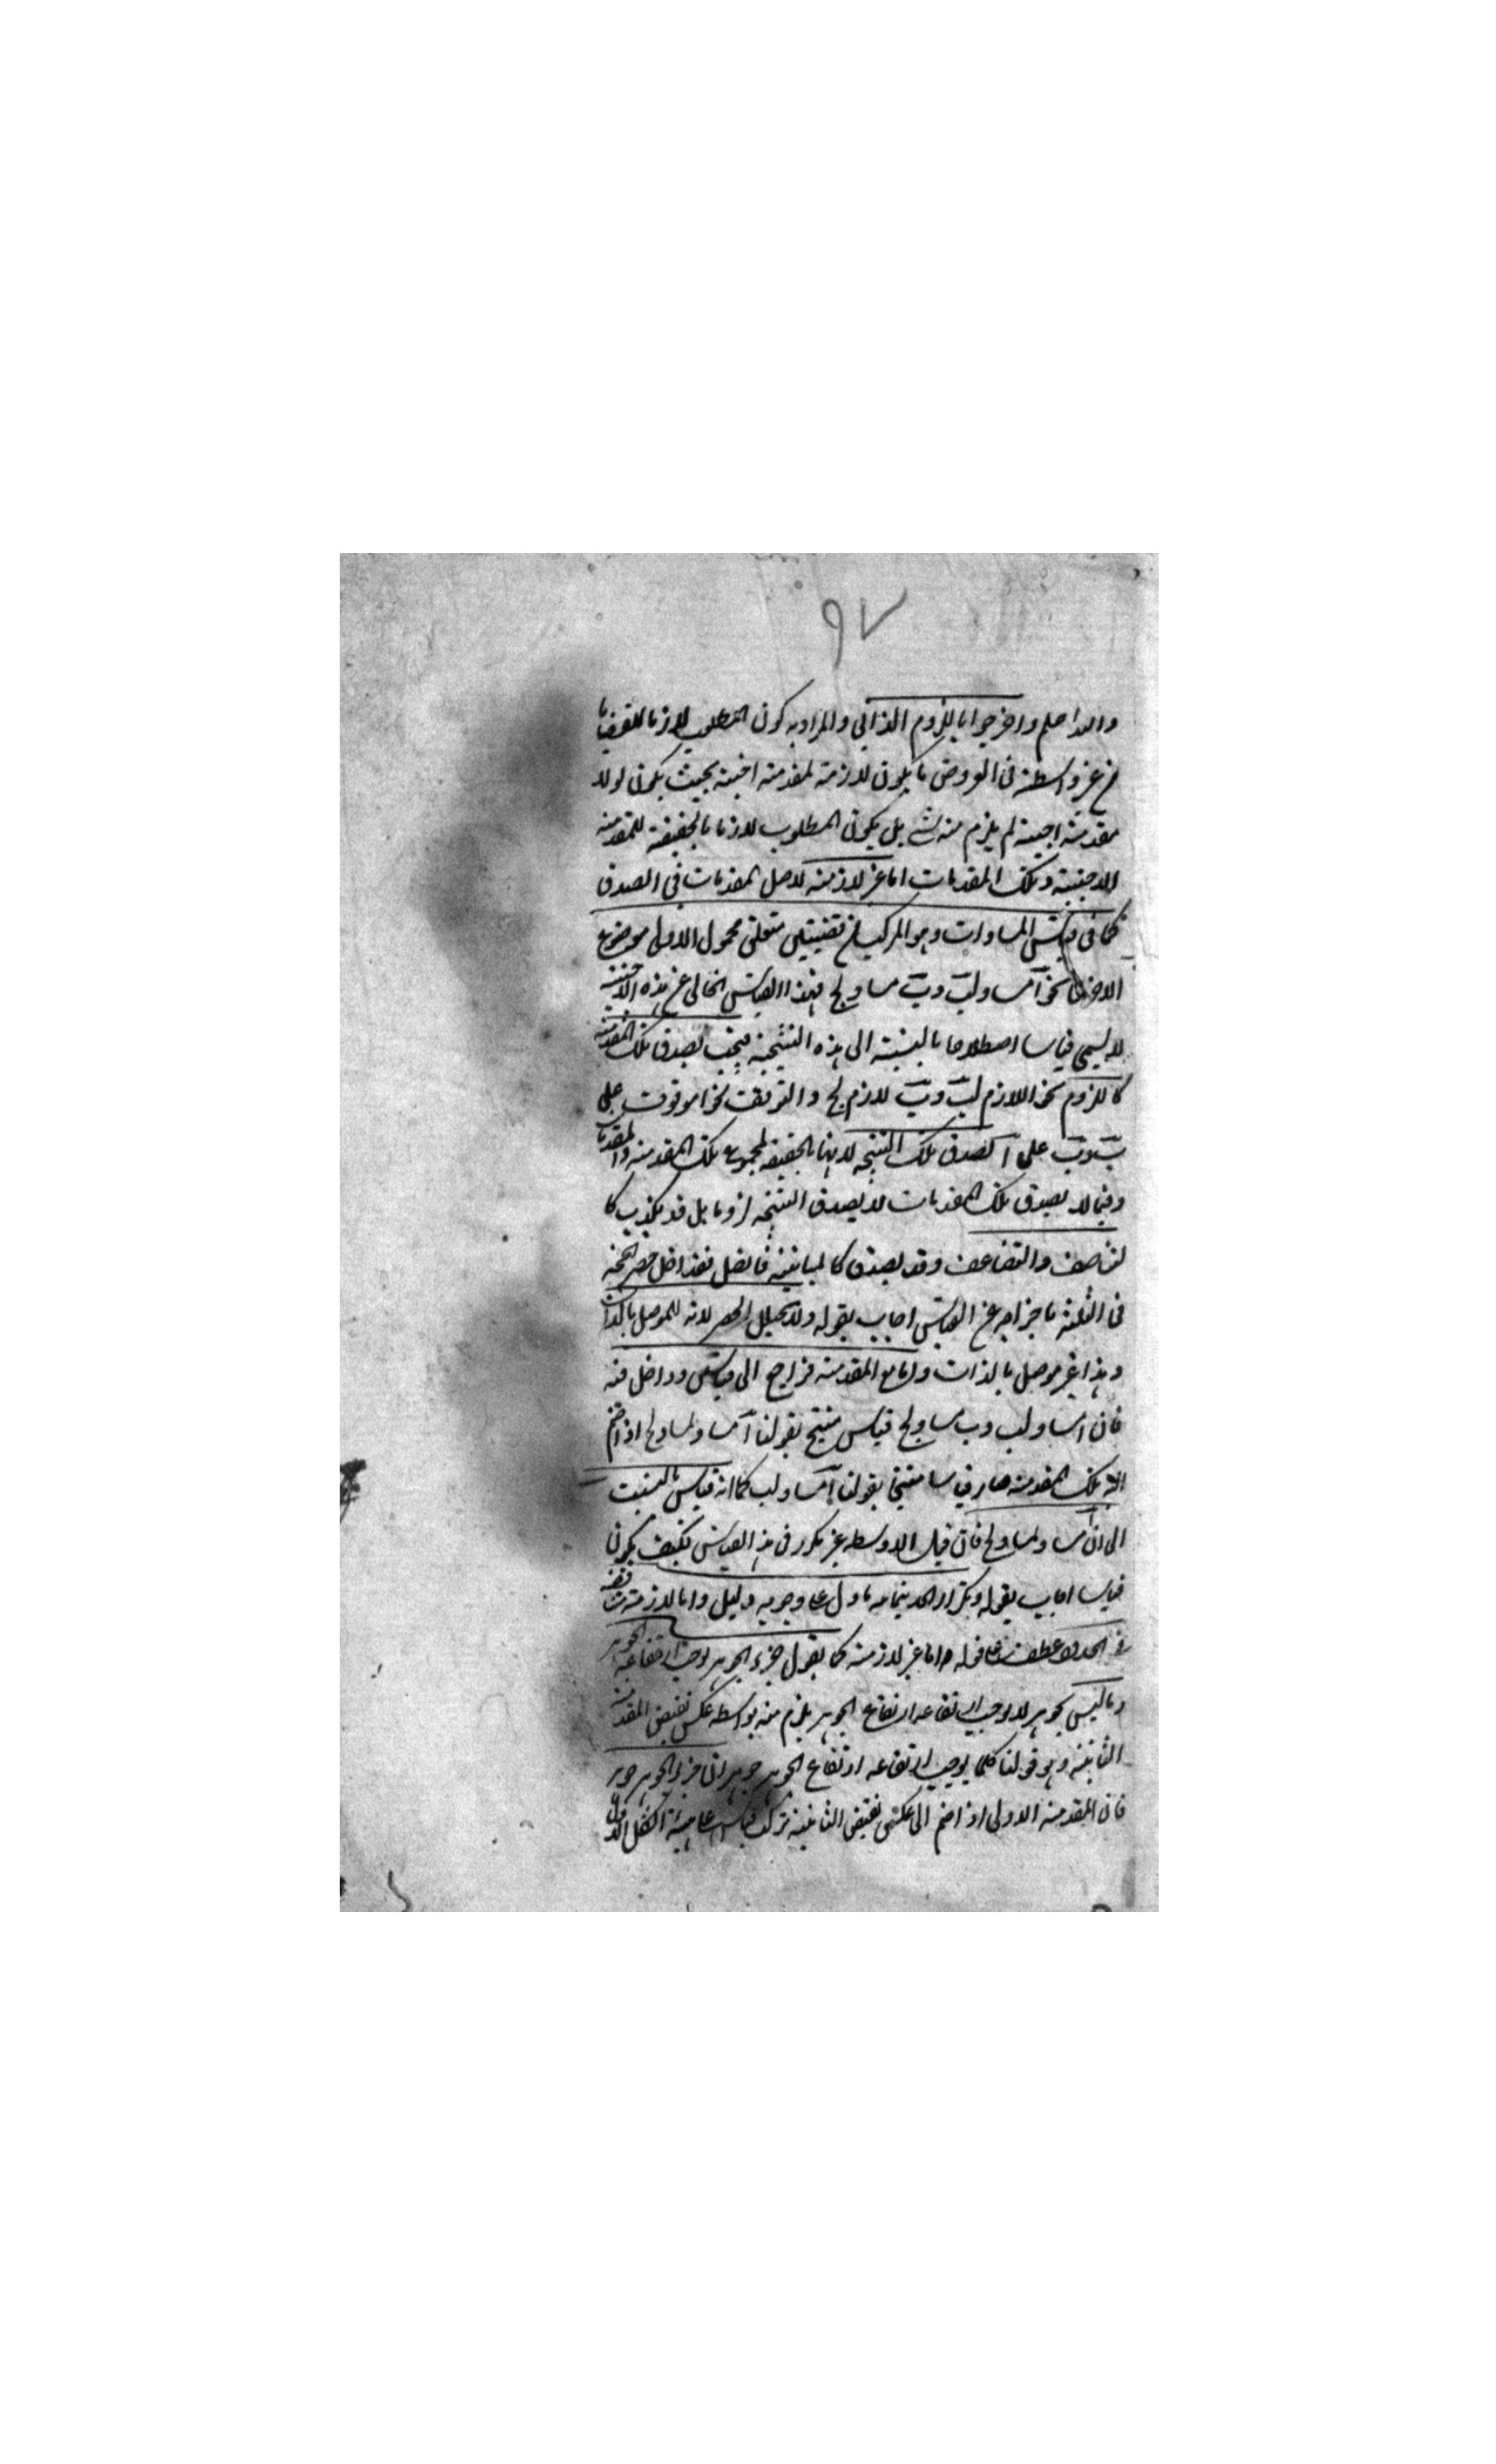 ٩٧
والداحلم واخرجوا باللزوم الذاتي والمراد به كون المطلوب لازما للقضايا
من غير واسطة فى العروض ما يكون لازمة لمقدمة اجنبية بحيث يكون لولا
مقدمة اجنبية لم يلزم منه شئ بل يكون المطلوب لازما بالحقيقة للمقدمة
الاجنبية وتلك المقدمات اما غير لازمة لاصل المقدمات في الصدق
كما في قياس المساوات وهو المركب من قضيتين متعلق محمول الاولى موضوع
الاخرى نحو آ مساو لب وب مساو لج فهذا القياس الخالى عن هذه الاجنبية
لا يسمى قياسا اصطلاحا بالنسبة الى هذه النتيجة فحيث يصدق تلك المقدمة
كاللزوم نحو اللازم لب وب لازم لج والتوقف نحو اموقوف على
ب وب على آ تصدق تلك النتيجة لانها بالحقيقة لمجموع تلك المقدمة والمقدمات
وفيما لا يصدق تلك المقدمات لا يصدق النتيجة لزوما بل قد يكذب كا
لتناصف والتضاعف وقد يصدق كالمباينة فان قيل فقد اختل حصر الحجة
فى الثلثة باخراجه عن القياس اجاب بقوله ولا يختل الحصر لانه للموصل بالذات
وهذا غير موصل بالذات واما مع المقدمة فراجع الى قياس وداخل فيه
فان ا مساو لب وب مساو لج قياس منتج لقولنا آ مساو لمساو لج اذا ضم
اليه تلك المقدمة صار قياسا منتجا لقولنا آ مساو لب كما انه قياس بالنسبت
الى ان آ مساو لمساو لج فان قيل الاوسط غير مكرر فى هذا القياس فكيف يكون
قياسا اجاب بقوله وتكرار الحد بتمامه ما دل على وجوبه دليل واما لازمة متناقضة
فى الحدود عطف على قوله اما غير لازمة كما يقول جزء الجوهر يوجب ارتفاعه الجوهر
وما ليس بجوهر لا يوجب ارتفاعه ارتفاع الجوهر يلزم منه بواسطة عكس نقيض المقدمة
الثانية وهو قولنا كلما يوجب ارتفاعه ارتفاع الجوهر جوهر ان جزء الجوهر جوهر
فان المقدمة الاولى اذا ضم الى عكس نقيض الثانية تركب قياس على هيئة الشكل الاول